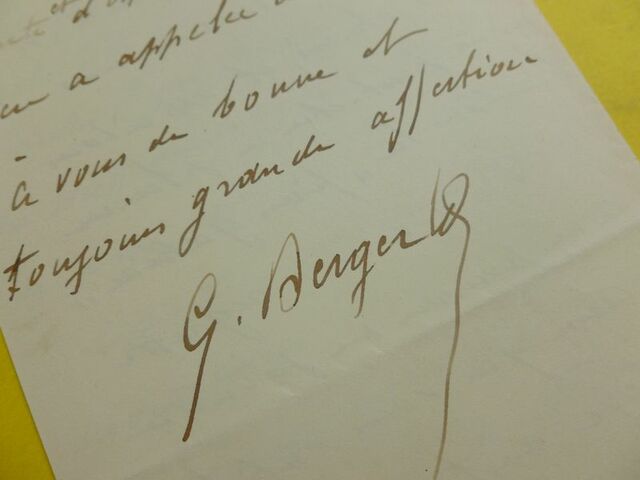 a appelée
à vous de bonne et
toujours grande affection
G. Berger